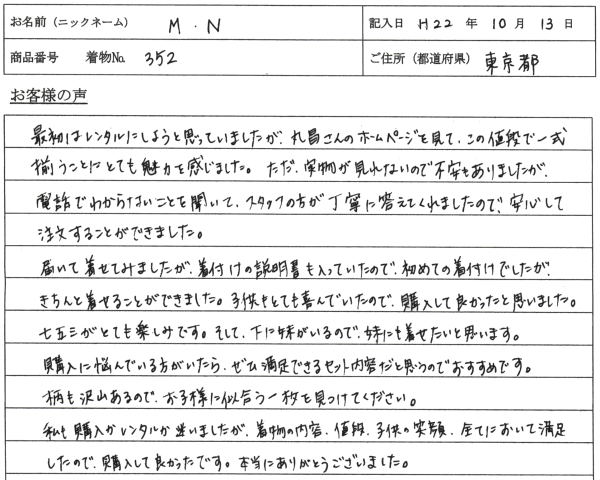 お名前（ニックネーム） M．N 記入日 H22 年 10 月 13 日
商品番号 着物No. 352 ご住所（都道府県） 東京都
お客様の声
最初はレンタルにしようと思っていましたが、丸昌さんのホームページを見て、この値段で一式
揃うことにとても魅力を感じました。ただ、実物が見れないので不安もありましたが、
電話でわからないことを聞いて、スタッフの方が丁寧に答えてくれましたので、安心して
注文することができました。
届いて着せてみましたが、着付けの説明書も入っていたので、初めての着付けでしたが、
きちんと着せることができました。子供もとても喜んでいたので、購入して良かったと思いました。
七五三がとても楽しみです。そして、下に妹がいるので、妹にも着せたいと思います。
購入に悩んでいる方がいたら、ぜひ満足できるセット内容だと思うのでおすすめです。
柄も沢山あるので、お子様に似合う一枚を見つけてください。
私も購入かレンタルか迷いましたが、着物の内容、値段、子供の笑顔、全てにおいて満足
したので、購入して良かったです。本当にありがとうございました。